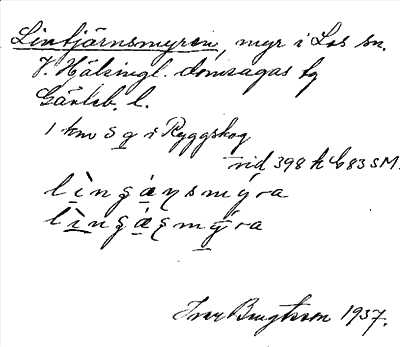 Lintjärnsmyren, myr i Los sn.
V. Hälsingl. domsagas tg
Gävleb. l.
1 km S g r Ryggskog
vid 398 h C 83 SM.
lìngá̱ṇsmyra
lì̱ngá̱ṇmy̱ra
Ivar Bengtsson 1937.